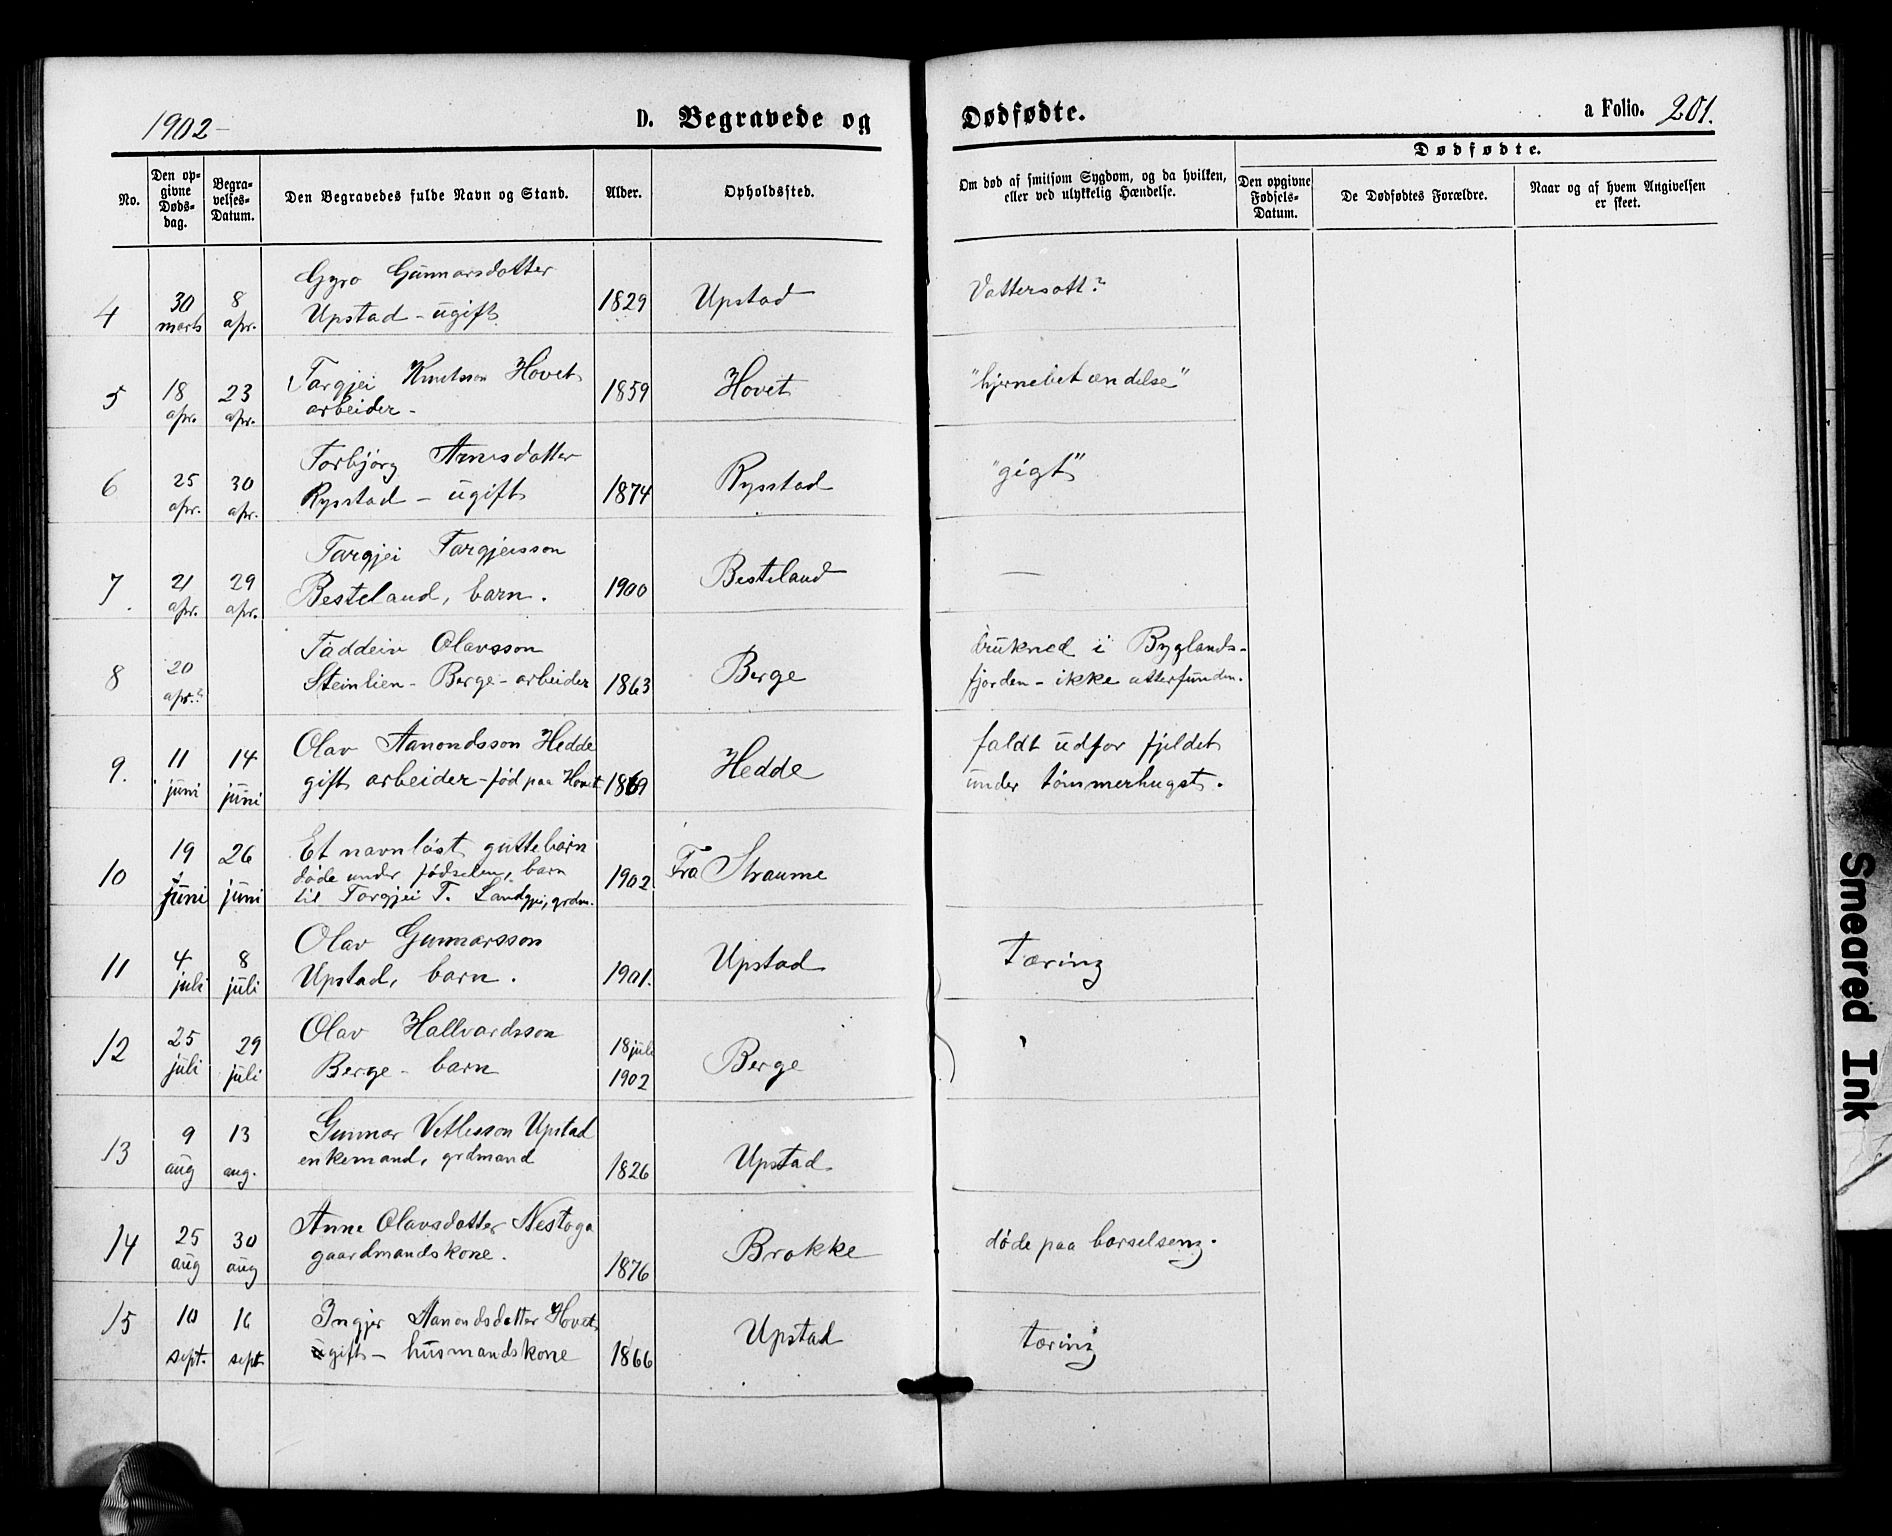 1902-
D. Begravede og
Dødfødte.
a Folio. 201.
No.
Den opgivne Dødsdag.
Begravelses-Datum.
Den Begravedes fulde Navn og Stand.
Alder.
Opholdssted.
Om død af smitsom Sygdom, og da hvilken, eller ved ulykkelig Hændelse.
Dødfødte.
Den opgivne Fødsels-Datum.
De Dødfødtes Forældre.
Naar og af hvem Angivelsen er skeet.
4 30 marts 8 apr. Gyro Gunnarsdatter
Upstad - ugift 1829 Upstad Vattersott?
5 18 apr. 23 apr. Targjei Knutsson Hovet
arbeider - 1859 Hovet "hjernebetændelse"
6 25 apr. 30 apr. Torbjörg Arnesdatter
Rysstad - ugift 1874 Rysstad "gigt"
7. 21 apr. 29 apr. Targjei Targjeisson
Besteland, barn. 1900 Besteland —
8 20 apr.? Taddeiv Olavsson
Steinlien - Berge - arbeider 1863 Berge drukned i Byglands-
fjorden - ikke atterfunden.
9. 11 juni 14 juni Olav Aanondsson Hedde
gift arbeider - fød paa Hovet 1869 Hedde faldt udfor fjeldet
under tømmerhugst.
10 19 juni 26 juni Et navnløst guttebarn
døde under fødselen, barn
til Targjei T. Landgjei, grdm. 1902 Fra Straume
11 4 juli 8 juli Olav Gunnarsson
Upstad, barn. 1901. Upstad Tæring
12 25 juli 29 juli Olav Hallvardsson
Berge - barn 18 juli 1902 Berge
13 9 aug 13 aug. Gunnar Vetlesson Upstad
enkemand, grdmand 1826 Upstad
14 25 aug 30 aug Anne Olavsdatter Nestoga
gaardmandskone. 1876 Brokke døde paa barselseng.
15 10 sept. 16 sept Ingjer Aanondsdatter Hovet
gift - husmandskone 1866 Upstad tæring
Smeared Ink